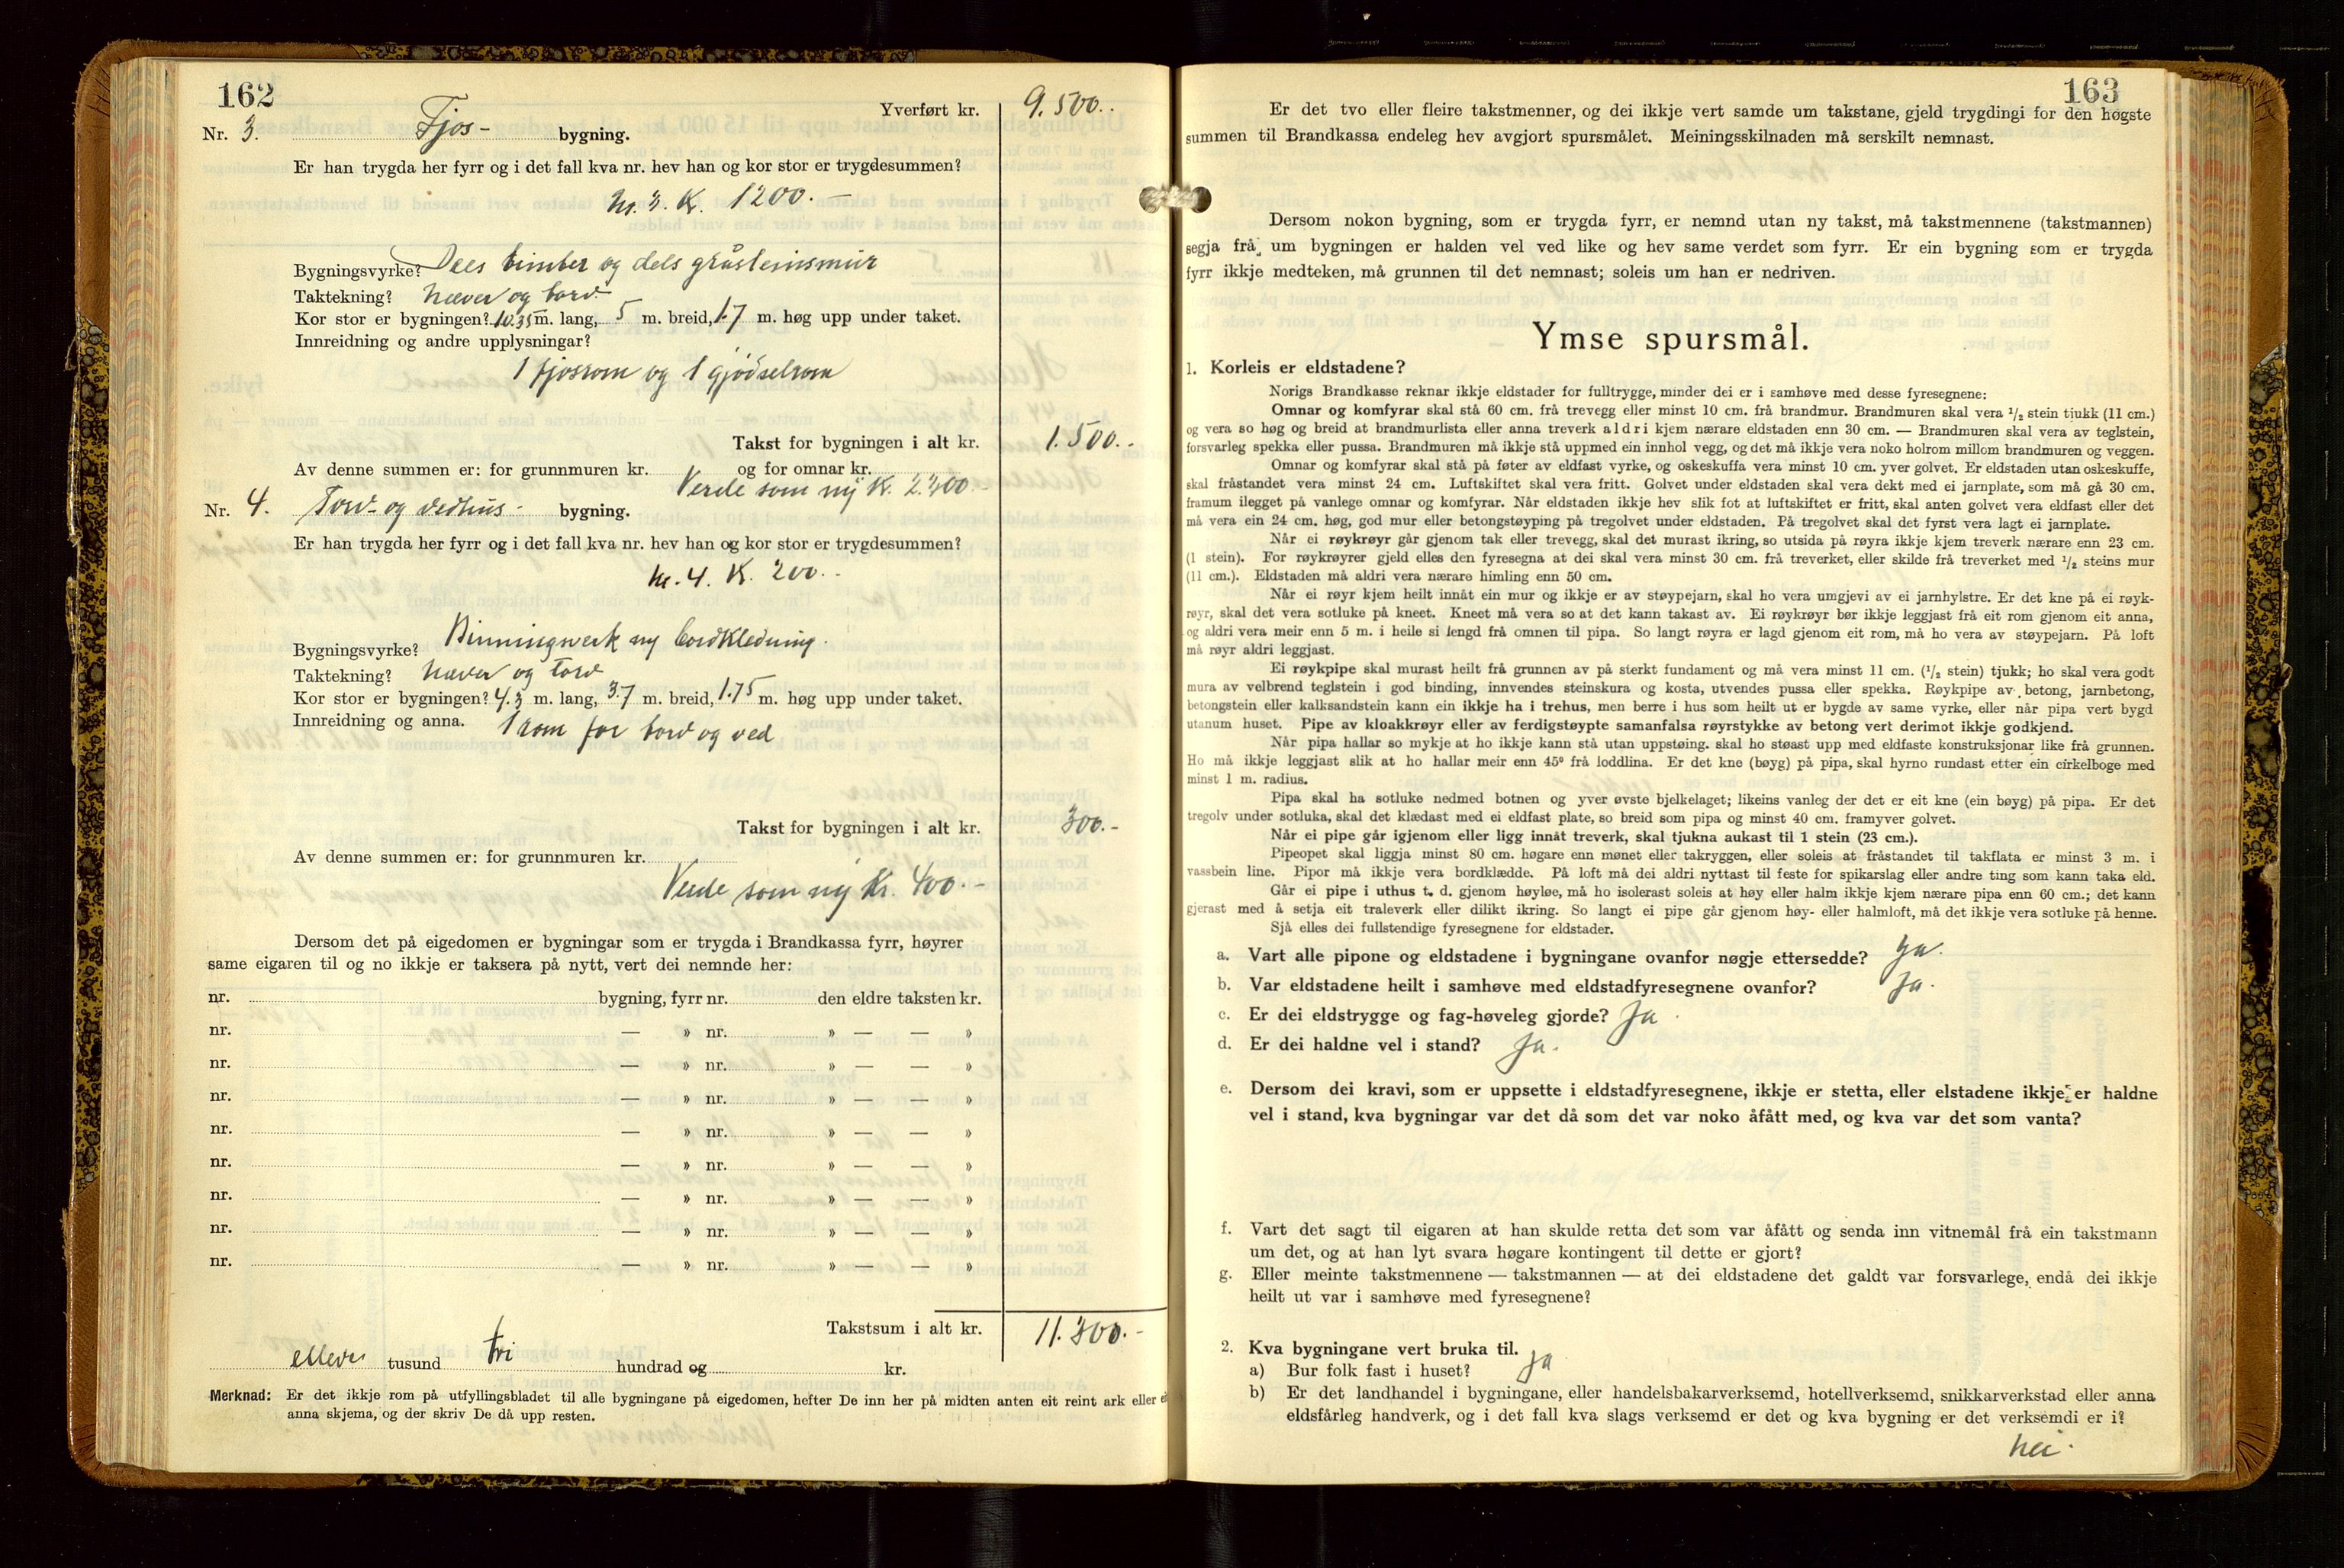 162
Yverført kr. 9.500.-
Nr. 3. Fjos- bygning.
Er han trygda her fyrr og i det fall kva nr. hev han og kor stor er trygdesummen?
Nr. 3. Kr. 1200.-
Bygningsvyrke? Dels timber og dels gråsteinsmur
Taktekning? Næver og torv
Kor stor er bygningen? 10.35 m. lang, 5 m. breid, 1.7 m. høg upp under taket.
Innreidning og andre upplysningar?
1 fjosrom og 1 gjødselrom
Takst for bygningen i alt kr. 1.500.-
Av denne summen er: for grunnmuren kr. og for omnar kr.
Verde som ny Kr. 2.300.-
Nr. 4. Torv- og vedhus- bygning.
Er han trygda her fyrr og i det fall kva nr. hev han og kor stor er trygdesummen?
Nr. 4. Kr. 200.-
Bygningsvyrke? Binningverk ny bordkledning.
Taktekning? Næver og torv
Kor stor er bygningen? 4.3 m. lang, 3.7 m. breid, 1.75 m. høg upp under taket.
Innreidning og anna. 1 rom for torv og ved
Takst for bygningen i alt kr. 300.-
Av denne summen er: for grunnmuren kr.
Verde som ny Kr. 400.-
Dersom det på eigedomen er bygningar som er trygda i Brandkassa fyrr, høyrer
same eigaren til og no ikkje er taksera på nytt, vert dei nemnde her:
nr. bygning, fyrr nr. den eldre taksten kr.
nr. — » nr. » — — »
nr. — » nr. » — — »
nr. — » nr. » — — »
nr. — » nr. » — — »
nr. — » nr. » — — »
nr. — » nr. » — — »
nr. — » nr. » — — »
nr. — » nr. » — — »
Takstsum i alt kr. 11.300.-
elleve tusund tri hundrad og kr.
Merknad: Er det ikkje rom på utfyllingsbladet til alle bygningane på eigedomen, hefter De inn her på midten anten eit reint ark eller
anna skjema, og der skriv De då upp resten.
163
Er det tvo eller fleire takstmenner, og dei ikkje vert samde um takstane, gjeld trygdingi for den høgste
summen til Brandkassa endeleg hev avgjort spursmålet. Meiningsskilnaden må serskilt nemnast.
Dersom nokon bygning, som er trygda fyrr, er nemnd utan ny takst, må takstmennene (takstmannen)
segja frå, um bygningen er halden vel ved like og hev same verdet som fyrr. Er ein bygning som er trygda
fyrr ikkje medteken, må grunnen til det nemnast; soleis um han er nedriven.
Ymse spursmål.
1. Korleis er eldstadene?
Norigs Brandkasse reknar ikkje eldstader for fulltrygge, minder dei er i samhøve med desse fyresegnene:
Omnar og komfyrar skal stå 60 cm. frå trevegg eller minst 10 cm. frå brandmur. Brandmuren skal vera 1/2 stein tjukk (11 cm.)
og vera so høg og breid at brandmurlista eller anna treverk aldri kjem nærare eldstaden enn 30 cm. — Brandmuren skal vera av teglstein,
forsvarleg spekka eller pussa. Brandmuren må ikkje stå uppmed ein innhol vegg, og det må ikkje vera noko holrom millom brandmuren og veggen.
Omnar og komfyrar skal stå på føter av eldfast vyrke, og oskeskuffa vera minst 10 cm. yver golvet. Er eldstaden utan oskeskuffe,
skal fråstandet vera minst 24 cm. Luftskiftet skal vera fritt. Golvet under eldstaden skal vera dekt med ei jarnplate, som må gå 30 cm.
framum ilegget på vanlege omnar og komfyrar. Når eldstaden ikkje hev slik fot at luftskiftet er fritt, skal anten golvet vera eldfast eller det
må vera ein 24 cm. høg, god mur eller betongstøyping på tregolvet under eldstaden. På tregolvet skal det fyrst vera lagt ei jarnplate.
Når ei røykrøyr går gjenom tak eller trevegg, skal det murast ikring, so utsida på røyra ikkje kjem treverk nærare enn 23 cm.
(1 stein). For røykrøyrer gjeld elles den fyresegna at dei skal vera minst 30 cm. frå treverket, eller skilde frå treverket med 1/2 steins mur
(11 cm.). Eldstaden må aldri vera nærare himling enn 50 cm.
Når ei røyr kjem heilt innåt ein mur og ikkje er av støypejarn, skal ho vera umgjevi av ei jarnhylstre. Er det kne på ei røyk-
røyr, skal det vera sotluke på kneet. Kneet må vera so at det kann takast av. Ei røykrøyr bør ikkje leggjast frå eit rom gjenom eit anna,
og aldri vera meir enn 5 m. i heile si lengd frå omnen til pipa. So langt røyra er lagd gjenom eit rom, må ho vera av støypejarn. På loft
må røyr aldri leggjast.
Ei røykpipe skal murast heilt frå grunnen av på sterkt fundament og må vera minst 11 cm. (1/2 stein) tjukk; ho skal vera godt
mura av velbrend teglstein i god binding, innvendes steinskura og kosta, utvendes pussa eller spekka. Røykpipe av betong, jarnbetong,
betongstein eller kalksandstein kann ein ikkje ha i trehus, men berre i hus som heilt ut er bygde av same vyrke, eller når pipa vert bygd
utanum huset. Pipe av kloakkrøyr eller av ferdigstøypte samanfalsa røyrstykke av betong vert derimot ikkje godkjend.
Når pipa hallar so mykje at ho ikkje kann stå utan uppstøing. skal ho støast upp med eldfaste konstruksjonar like frå grunnen.
Ho må ikkje leggjast slik at ho hallar meir enn 45° frå loddlina. Er det kne (bøyg) på pipa, skal hyrno rundast etter ein cirkelboge med
minst 1 m. radius.
Pipa skal ha sotluke nedmed botnen og yver øvste bjelkelaget; likeins vanleg der det er eit kne (ein bøyg) på pipa. Er det
tregolv under sotluka, skal det klædast med ei eldfast plate, so breid som pipa og minst 40 cm. framyver golvet.
Når ei pipe går igjenom eller ligg innåt treverk, skal tjukna aukast til 1 stein (23 cm.).
Pipeopet skal liggja minst 80 cm. høgare enn mønet eller takryggen, eller soleis at fråstandet til takflata er minst 3 m. i
vassbein line. Pipor må ikkje vera bordklædde. På loft må dei aldri nyttast til feste for spikarslag eller andre ting som kann taka eld.
Går ei pipe i uthus t. d. gjenom høyløe, må ho isolerast soleis at høy eller halm ikkje kjem nærare pipa enn 60 cm.; det kann
gjerast med å setja eit traleverk eller dilikt ikring. So langt ei pipe går gjenom høy- eller halmloft, må det ikkje vera sotluke på henne.
Sjå elles dei fullstendige fyresegnene for eldstader.
a. Vart alle pipone og eldstadene i bygningane ovanfor nøgje ettersedde? Ja.
b. Var eldstadene heilt i samhøve med eldstadfyresegnene ovanfor? Ja.
c. Er dei eldstrygge og fag-høveleg gjorde? Ja.
d. Er dei haldne vel i stand? Ja.
e. Dersom dei kravi, som er uppsette i eldstadfyresegnene, ikkje er stetta, eller elstadene ikkje er haldne
vel i stand, kva bygningar var det då som det var noko åfått med, og kva var det som vanta?
f. Vart det sagt til eigaren at han skulde retta det som var åfått og senda inn vitnemål frå ein takstmann
um det, og at han lyt svara høgare kontingent til dette er gjort?
g. Eller meinte takstmennene — takstmannen — at dei eldstadene det galdt var forsvarlege, endå dei ikkje
heilt ut var i samhøve med fyresegnene?
2. Kva bygningane vert bruka til.
a) Bur folk fast i huset? Ja
b) Er det landhandel i bygningane, eller handelsbakarverksemd, hotellverksemd, snikkarverkstad eller anna
eldsfårleg handverk, og i det fall kva slags verksemd er det og kva bygning er det verksemdi er i?
Nei.